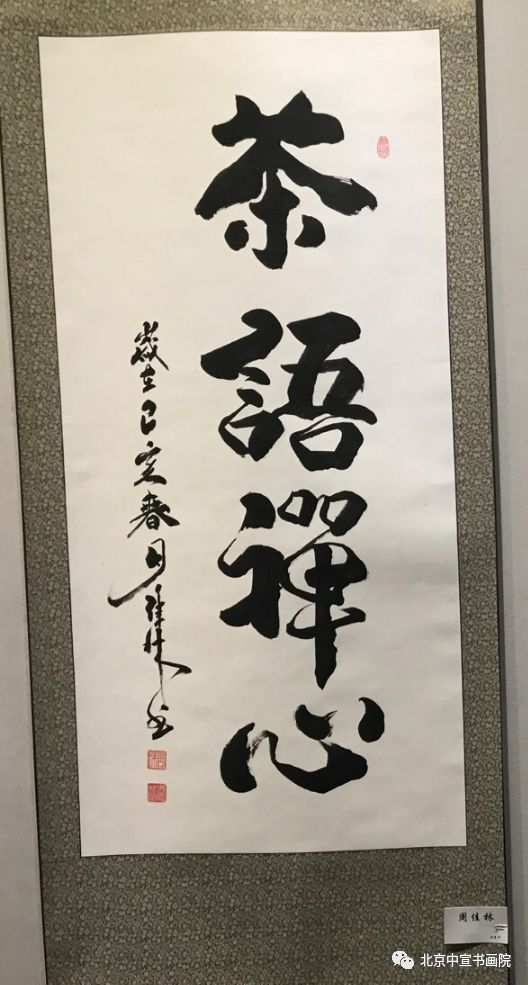 茶語禪心
歲在己亥春月佳林書
周佳林
北京中宣书画院